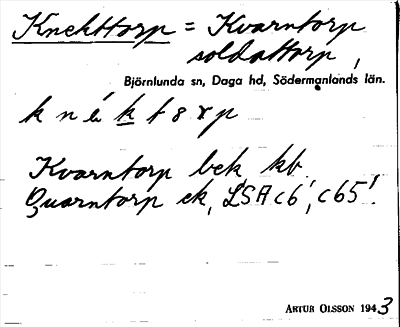 Knekttorp = Kvarntorp
soldattorp,
Björnlunda sn, Daga hd, Södermanlands län.
k n é k t o r p
Kvarntorp bek kb
Quarntorp ek, LSA c6, c65!
ARTUR OLSSON 1943